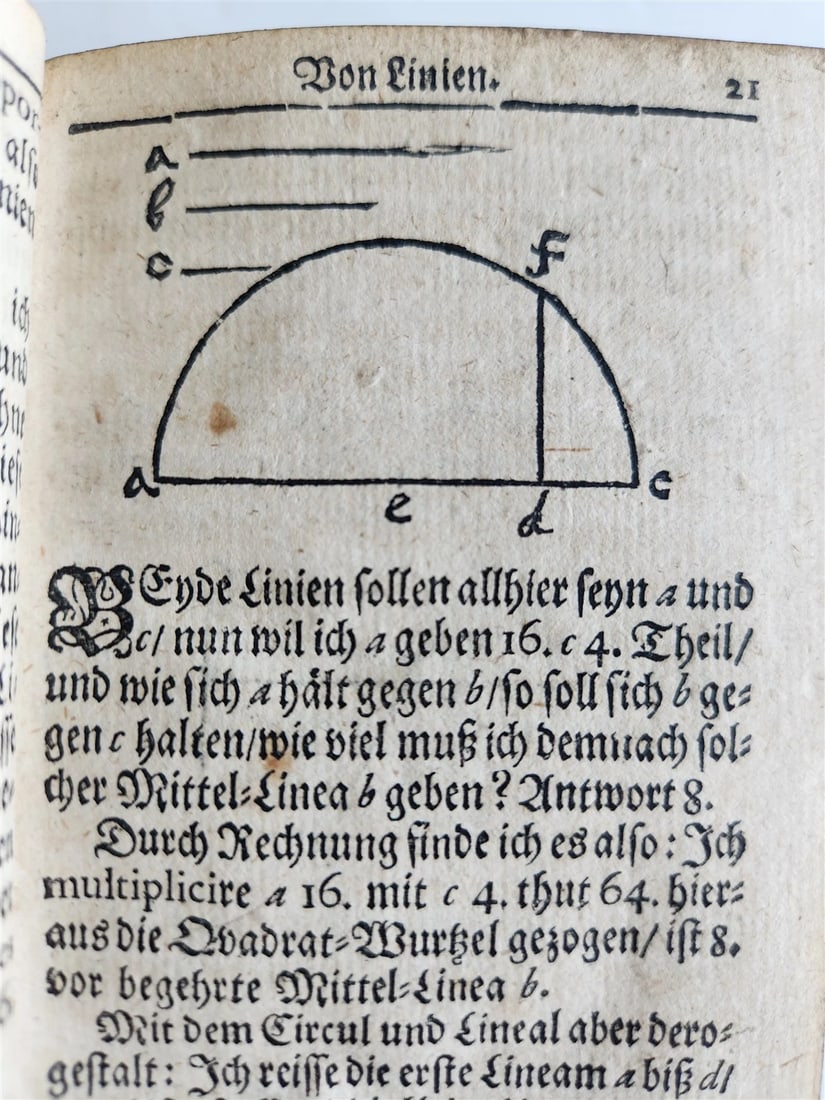 Von Linien. 21
a
b
c
f
a
c
e
d
BEyde Linien sollen allhier seyn a und
c/ nun wil ich a geben 16. c 4. Theil/
und wie sich a hält gegen b/ so soll sich b ge-
gen c halten/ wie viel muß ich demnach sol-
cher Mittel-Linea b geben? Antwort 8.
Durch Rechnung finde ich es also: Ich
multiplicire a 16. mit c 4. thut 64. hier-
aus die Qvadrat-Wurtzel gezogen/ ist 8.
vor begehrte Mittel-Linea b.
Mit dem Circul und Lineal aber dero-
gestalt: Ich reisse die erste Lineam a biß d/